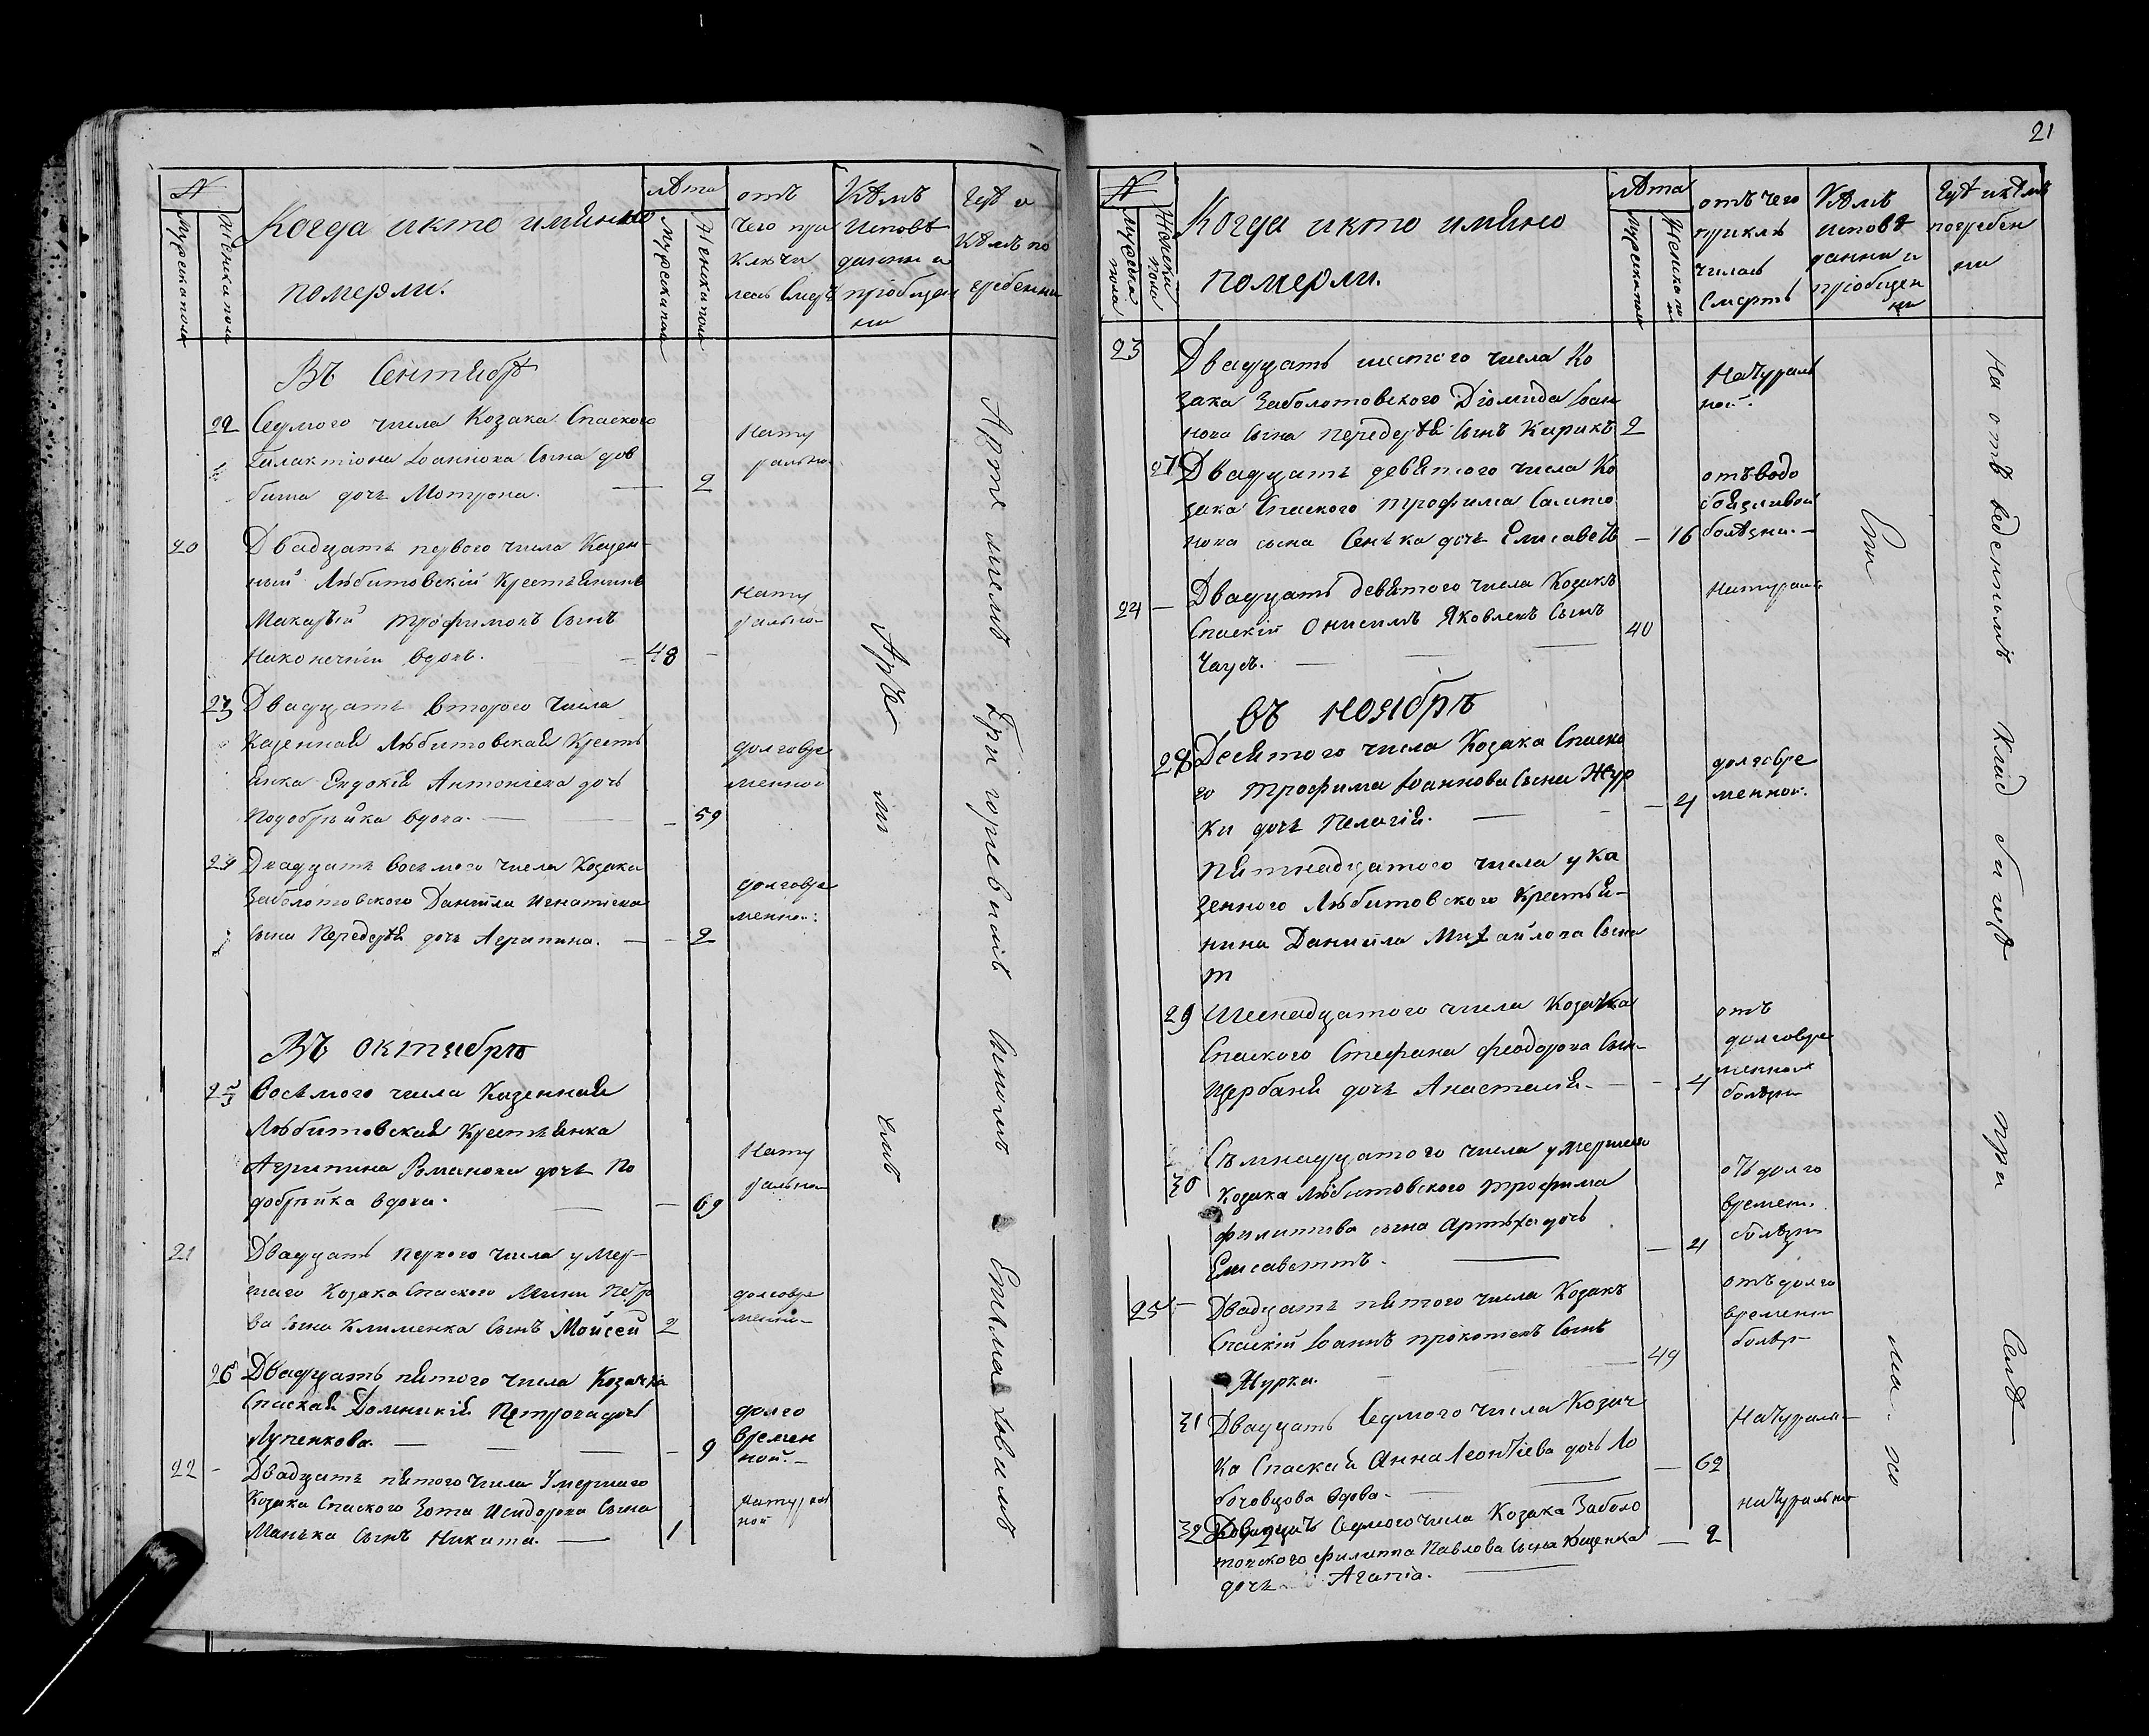 21
№
Мужеска пола
Женска пола
Когда икто имянно
померли.
лѣта
Мужеска пола
Женска пола
отъ
чего при
ключи
лась Смерт
Кѣмъ
Исповѣ
данны и
пріобщен
ны
Гдѣ и
кѣмъ по
гребенны
Въ Сентябрѣ
22 Седмого числа Козака Спаского
Галактіона Іоаннова Сына дов
биша дочь Мотрона. — 2
Нату
рально
20 Двадцать первого числа Казен-
ный Любитовскій Крестьянинъ
Макарій Трофимовъ Сынъ
Наконечній вдовъ. — 48 —
Нату
рально
23 Двадцать второго числа
Казенная Любитовская Кресть
янка Евдокія Антоніева дочь
Подобрѣйка вдова. — 59
долговре
менной
24 Двадцать восьмого числа Козака
Заболотовского Даніила Игнатіева
Сына Передерѣя дочь Агрипина. — 2
долговре
менной:
Въ октябрѣ
25 Восьмого числа Казенная
Любитовская Крестьянка
Агрипина Романова дочь По
добрѣйка вдова. — 69
Нату
рально
21 Двадцать первого числа умер-
шаго Козака Спаского Мины Петро
ва Сына Клименка Сынъ Мойсей 2
долговре
менно
26 Двадцать пятого числа Козачка
Спаская Домникія Петрова дочь
Лупенкова. — 9
долго
времен
ной. —
22 - Двадцать пятого числа Умершаго
Козака Спаского Зота Исидорова Сына
Манька Сынъ Никита. — 1
натураль
ной
Григоріевимъ
№
Мужеска пола
Женска пола
Когда икто имянно
померли.
лѣта
Мужеска пола
Женска по
отъ чего
приклю
чилась
Смерть
Кѣмъ
исповѣ
данны и
пріобщен
ны
Гдѣ икѣмъ
погребен
ны
23 Двадцать шестого числа Ко
зака Заболотовского Діомида Іоан
нова Сына Передерѣя Сынъ Кирикъ 2
Натураль
ной.
27 Двадцать девятого числа Ко
зака Спаского Трофима Сампсо
нова сына Сенька дочь Елисаветъ — 16
отъ водо
боязливой
болѣзни. —
24 — Двадцать девятого числа Козакъ
Спаскій Онисимъ Яковлевъ Сынъ 40
Чаусъ. —
Натураль
Въ Ноябрѣ
28 Десятого числа Козака Спаско
го Трофима Іоаннова Сына Жур
ки дочь Пелагія. — 4
долговре
менной.
Пятнадцатого числа у ка
зенного Любитовского Крестья-
нина Даниила Михайлова Сына
т
29 Шеснадцатого числа Козака
Спаского Стефана Феодорова Сын-
Щербаня дочь Анастасія. — 4
отъ
долговре
менной
болѣзни
30 Сѣмнадцатого числа умершаго
Козака Любитовского Трофима
Филиппова сына дочь
Елисаветтъ. — 4
отъ долго
времен.
болѣзни
25 — Двадцать пятого числа Козакъ
Спаскій Іоаннъ Прокопіевъ Сынъ
Журка. — 49
отъ долго
времени
болѣз
31 Двадцать Седмого числа Козач
ка Спаская Анна Леонтіева дочь Ло
бочовцова вдова. — 62
Натураль
32 Двадцать Седмого числа Козака Заболо
товского Филиппа Павлова Сына Кищенка — 2
дочь Агапіа.
натурально
На отъ веденномъ Клад бищѣ при Селѣ